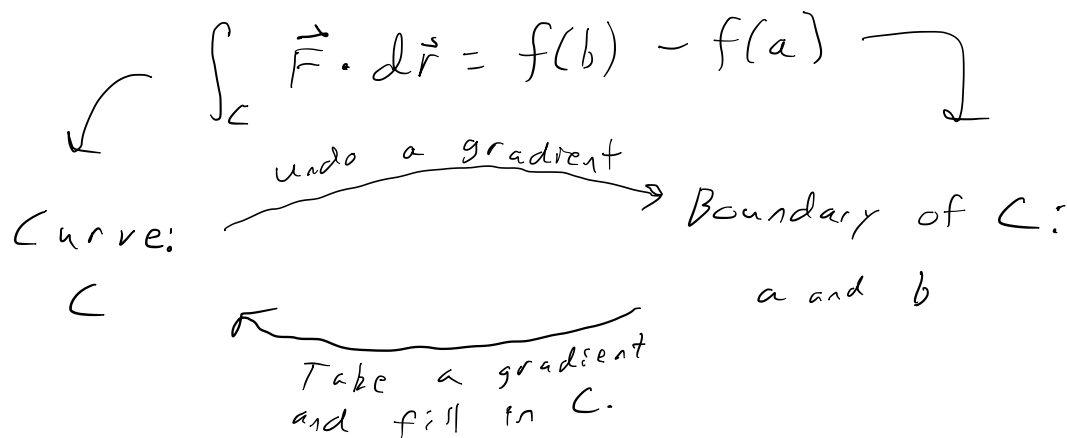 ∫_C F⃗ · dr⃗ = f(b) − f(a)
undo a gradient
Curve:
C
Boundary of C:
a and b
Take a gradient
and fill in C.